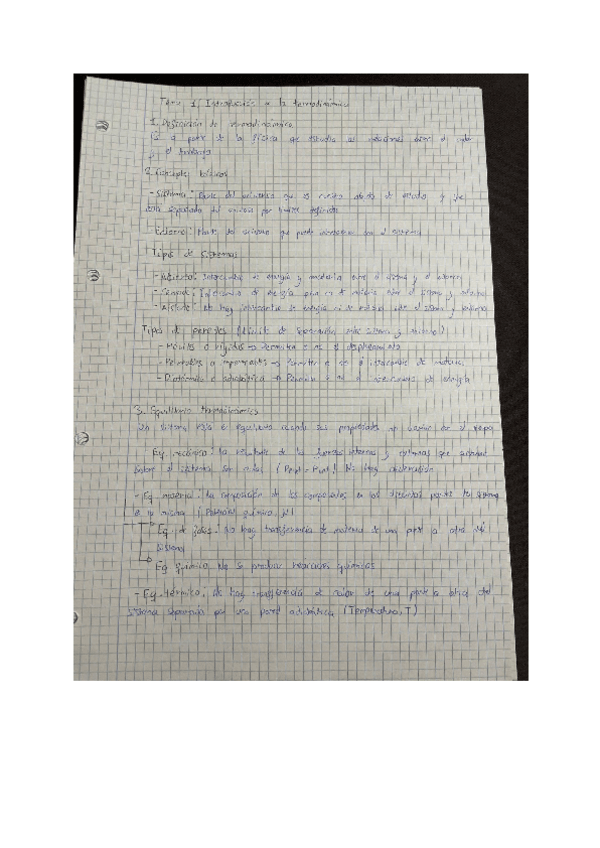 Tema 1. Introducción a la termodinámica
1. Definición de termodinámica
Es la parte de la física que estudia las relaciones entre el calor
y el trabajo
2. Conceptos básicos
- Sistema: Parte del universo que es nuestro objeto de estudio y que
está separada del universo por límites definidos
Entorno: Parte del universo que puede interactuar con el sistema
Tipos de sistemas
- Abierto: Intercambia energía y materia entre el sistema y el entorno
- Cerrado: Intercambio de energía pero no de materia entre el sistema y entorno
- Aislado: No hay intercambio de energía ni de materia entre el sistema y entorno
Tipos de paredes (límite de separación entre sistema y entorno)
- Móviles o rígidas → Permiten o no el desplazamiento
- Permeables o impermeables → Permiten o no el intercambio de materia
- Diatérmica o adiabática → Permiten o no el intercambio de energía
3. Equilibrio termodinámico
Un sistema está en equilibrio cuando sus propiedades no varían con el tiempo
Eq. mecánico: La resultante de las fuerzas internas y externas que actúan
sobre el sistema son nulas No hay aceleración
- Eq. material: La composición de los componentes en las diferentes partes del sistema
es la misma (Potencial químico, μ)
Eq. de fases: No hay transferencia de materia de una parte a otra del
sistema
Eq. Químico: No se producen reacciones químicas
- Eq. térmico: No hay transferencia de calor de una parte a otra del
sistema separadas por una pared (Temperatura, T)